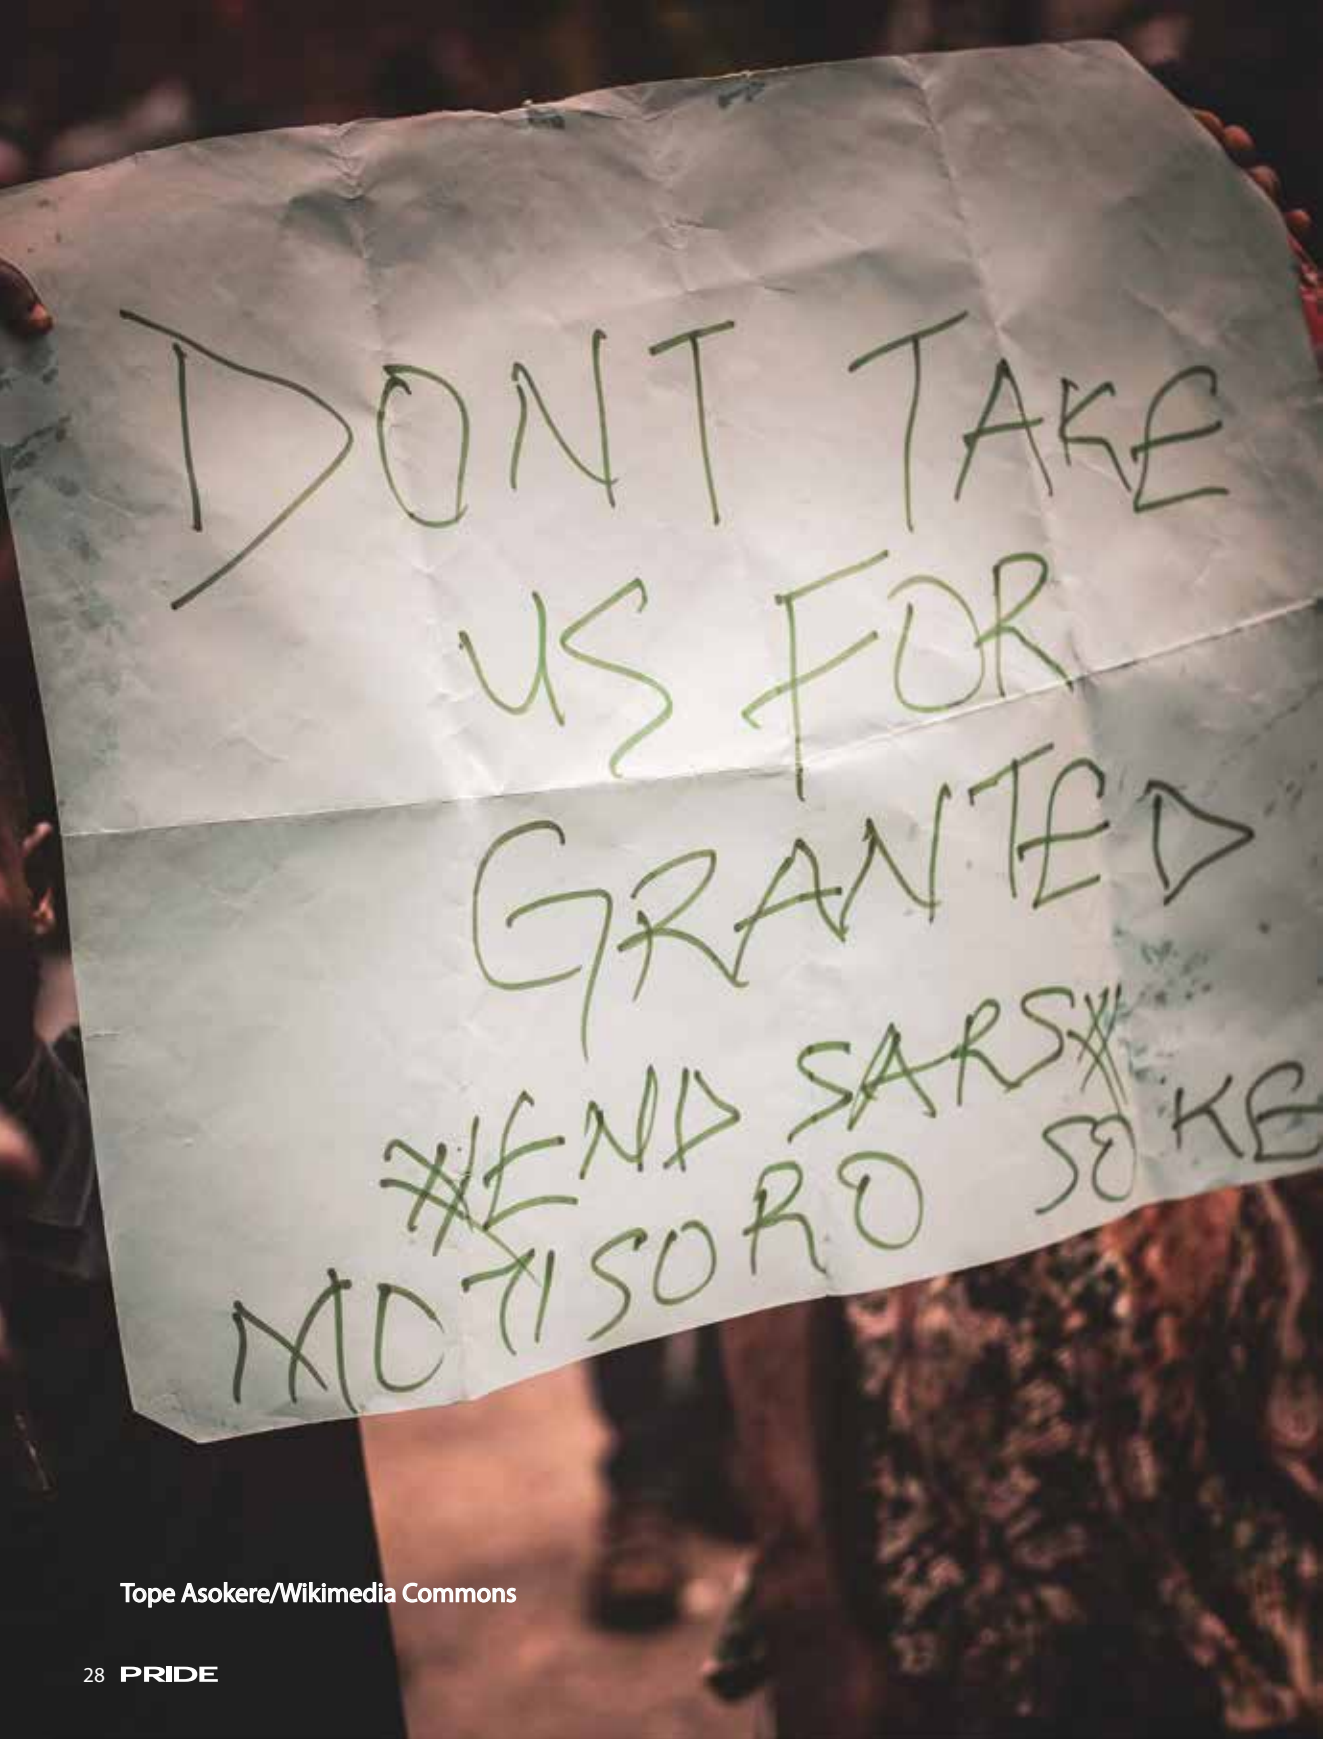 DONT TAKE
US FOR
GRANTED
#END SARS#
MOTISORO SOKE
Tope Asokere/Wikimedia Commons
28 PRIDE